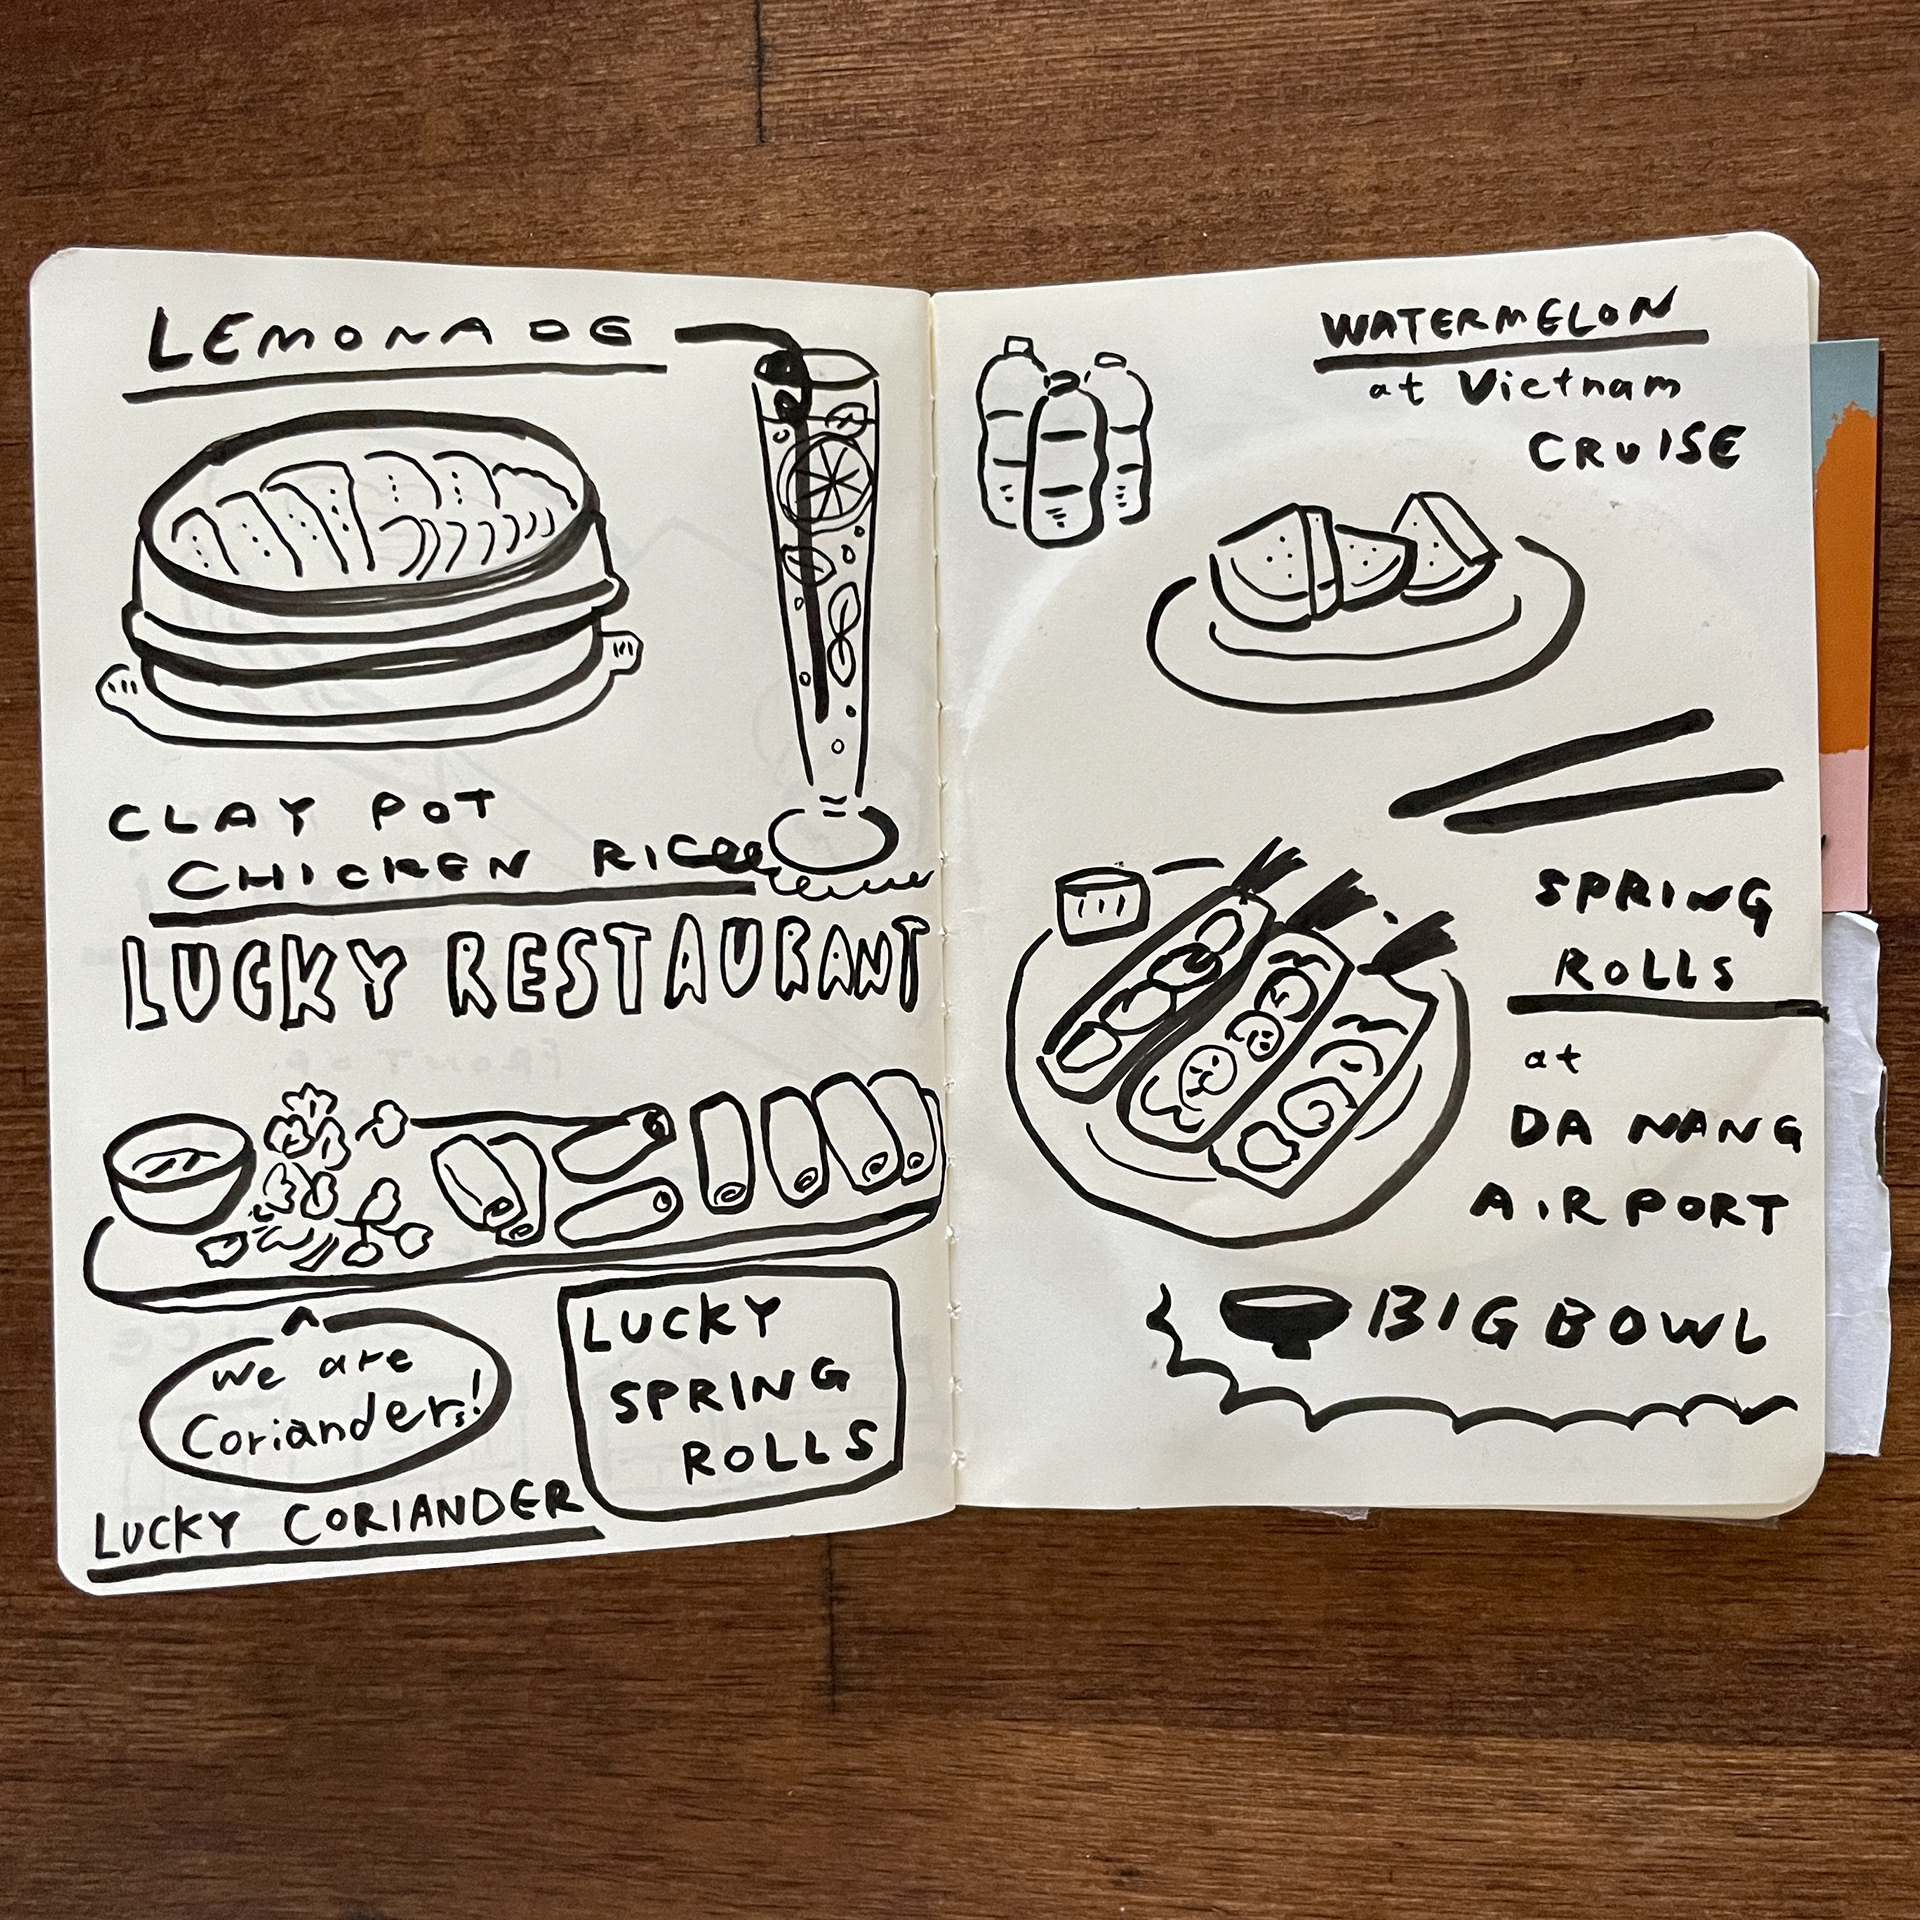 LEMONADE
CLAY POT
CHICKEN RICE
LUCKY RESTAURANT
we are
Corianders!
LUCKY
SPRING
ROLLS
LUCKY CORIANDER
WATERMELON
at Vietnam
CRUISE
SPRING
ROLLS
at
DA NANG
AIRPORT
BIG BOWL